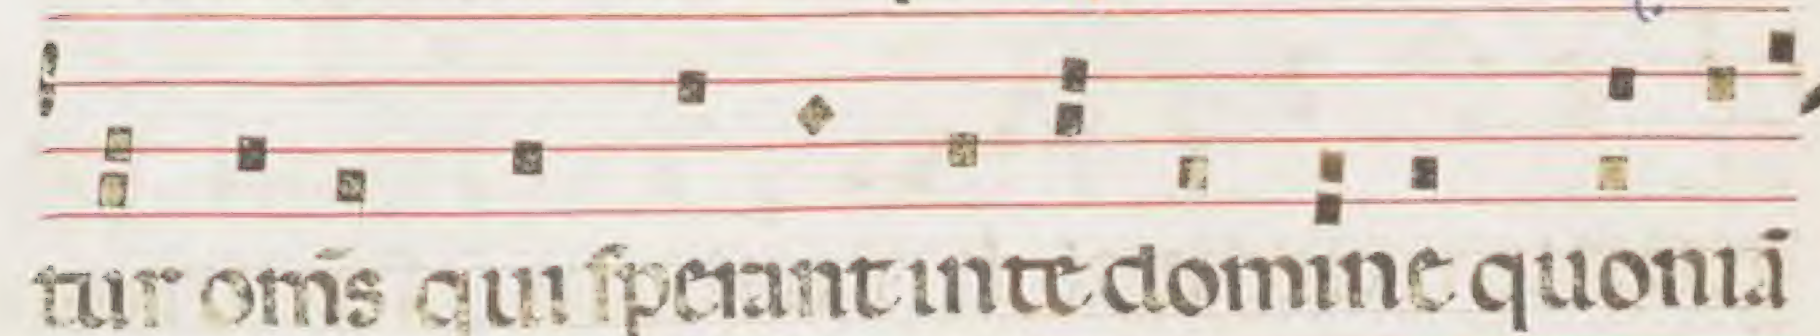 tur om̄s qui sperant in te domine quoniā